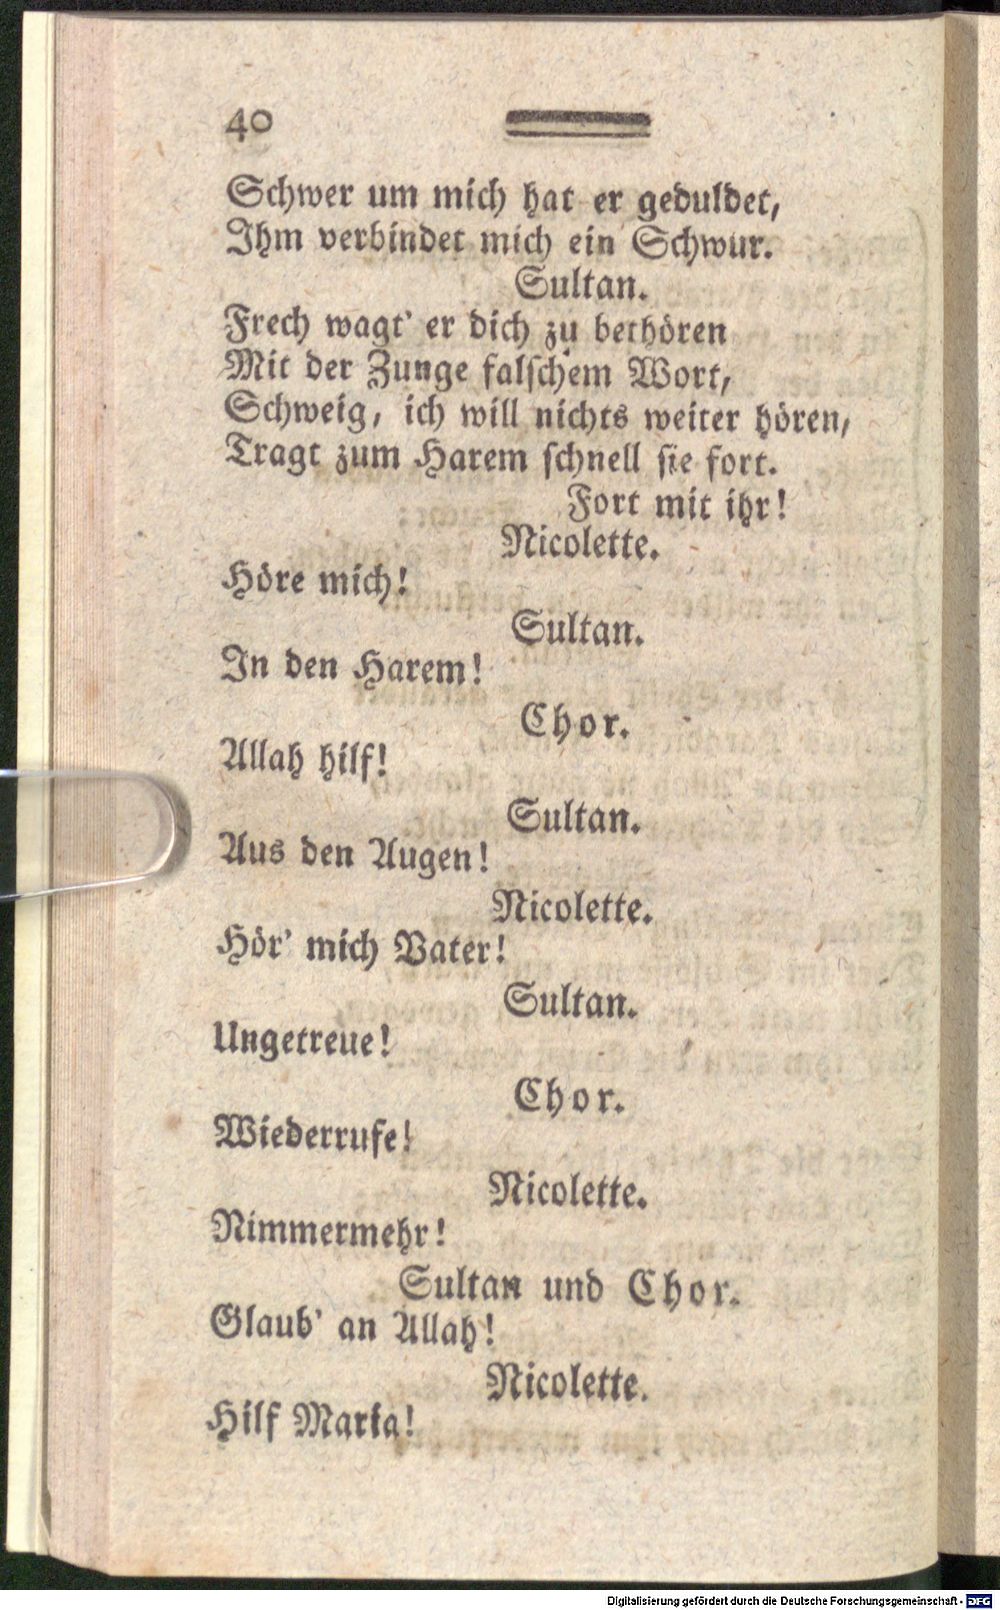 40
Schwer um mich hat er geduldet,
Ihm verbindet mich ein Schwur.
Sultan.
Frech wagt' er dich zu bethören
Mit der Zunge falschem Wort,
Schweig, ich will nichts weiter hören,
Tragt zum Harem schnell sie fort.
Fort mit ihr!
Nicolette.
Höre mich!
Sultan.
In den Harem!
Chor.
Allah hilf!
Sultan.
Aus den Augen!
Nicolette.
Hör' mich Vater!
Sultan.
Ungetreue!
Chor.
Wiederrufe!
Nicolette.
Nimmermehr!
Sultan und Chor.
Glaub' an Allah!
Nicolette.
Hilf Maria!
Digitalisierung gefördert durch die Deutsche Forschungsgemeinschaft - DFG